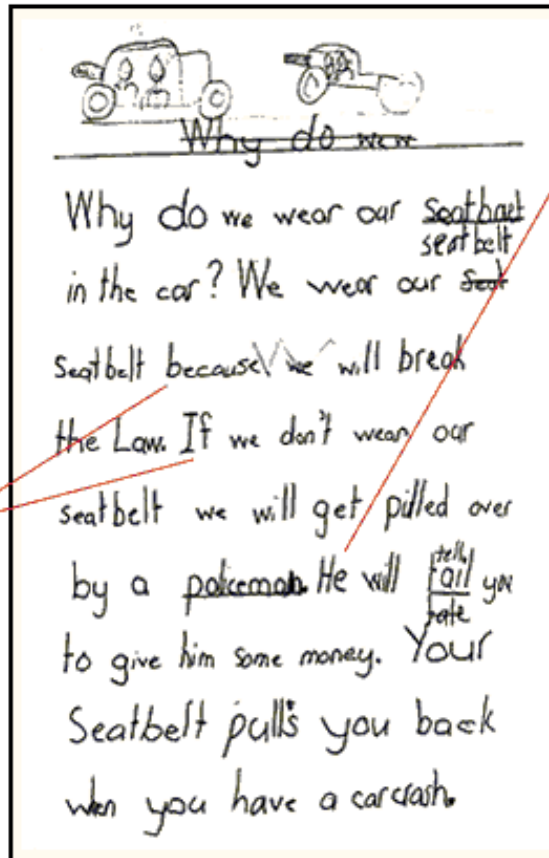 Why do wew
Why do we wear our seatbaet
seatbelt
in the car? We wear our seat
seatbelt because we will break
the Law. If we don't wear our
seatbelt we will get pilled over
by a policeman. He will tell you
to give him some money. Your
Seatbelt pulls you back
when you have a carcrash.